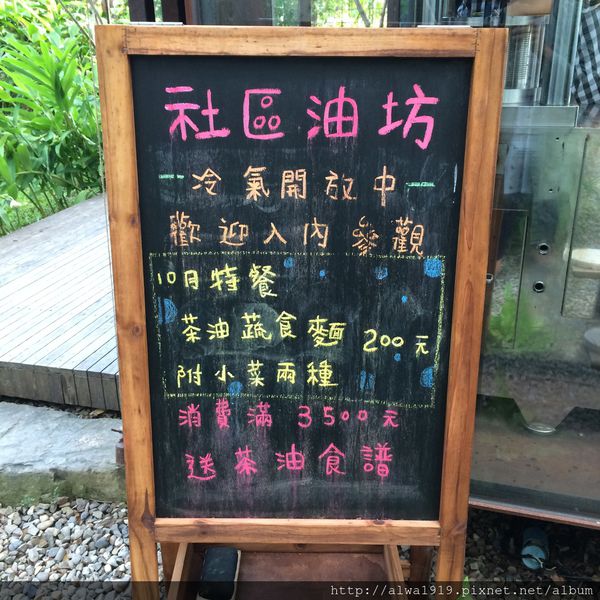 社區油坊
冷氣開放中
歡迎入內參觀
10月特餐
茶油蔬食麵 200元
附小菜兩種
消費滿 3500元
送茶油食譜
http://alwa1919.pixnet.net/album